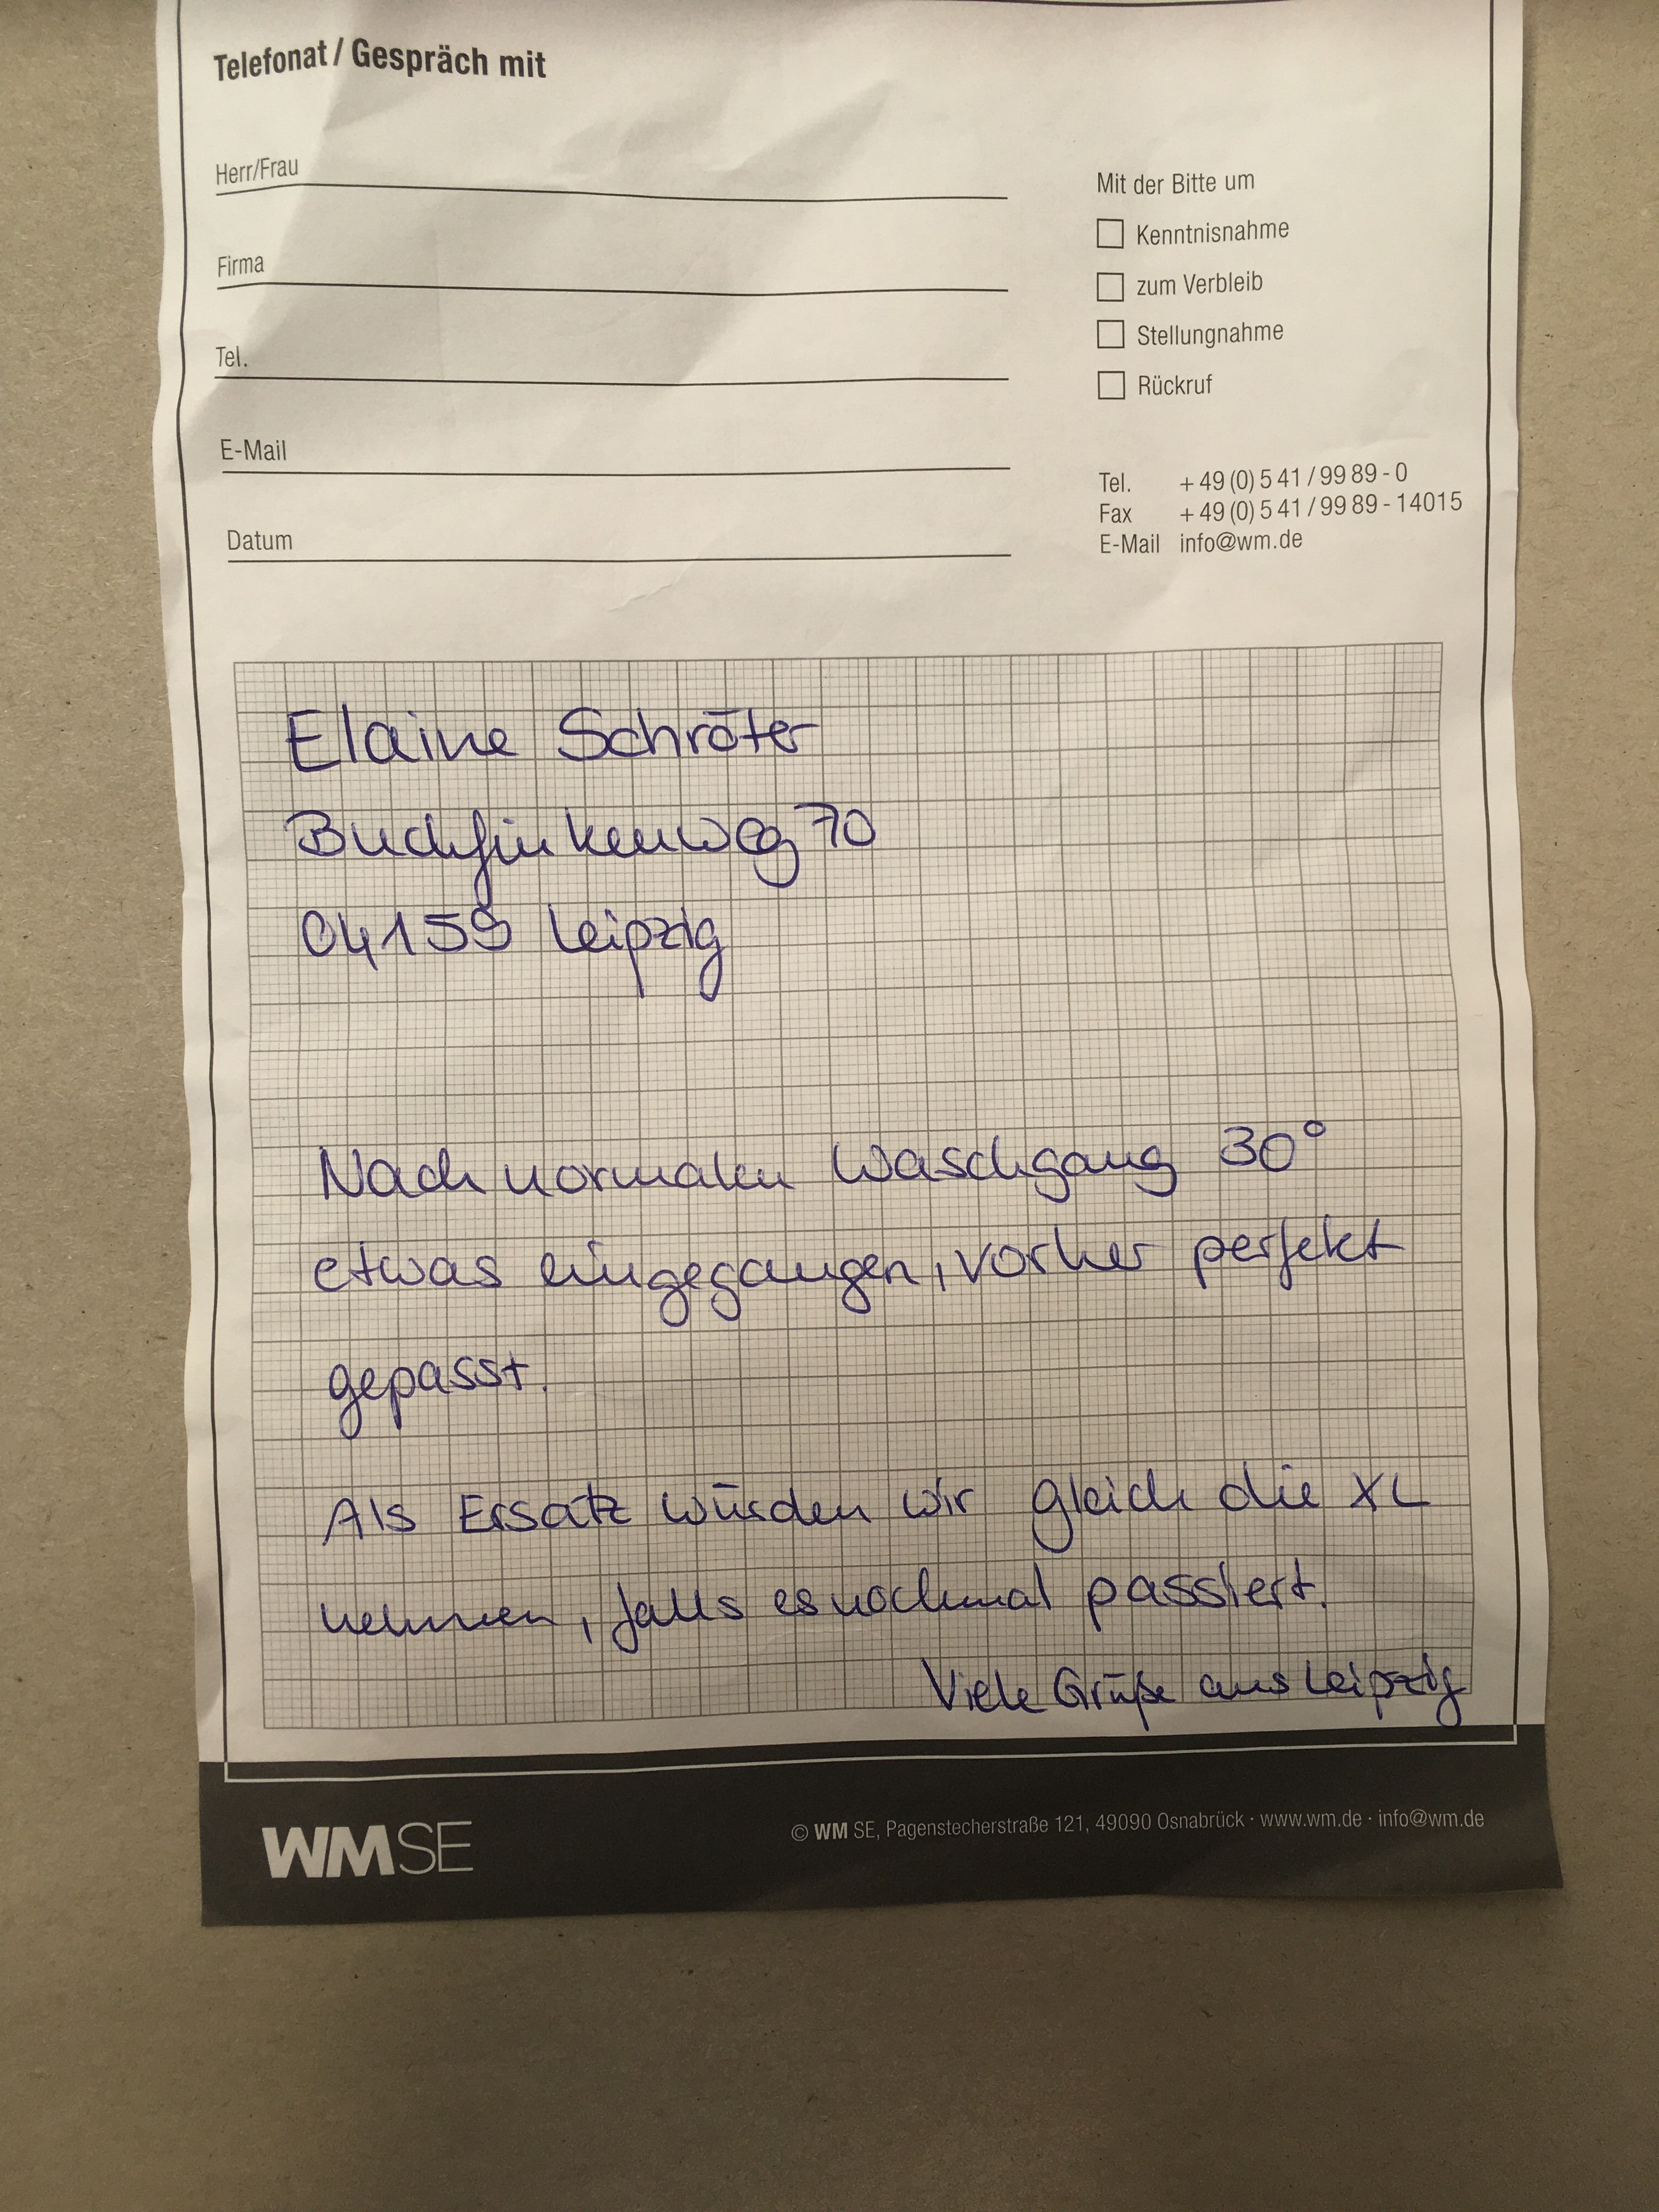 Telefonat / Gespräch mit
Herr/Frau
Firma
Tel.
E-Mail
Datum
Mit der Bitte um
Kenntnisnahme
zum Verbleib
Stellungnahme
Rückruf
Tel. + 49 (0) 5 41 / 99 89 - 0
Fax + 49 (0) 5 41 / 99 89 - 14015
E-Mail info@wm.de
Elaine Schröter
Buchfinkenweg 70
04159 Leipzig
Nach normalen Waschgang 30°
etwas eingegangen, vorher perfekt
gepasst.
Als Ersatz würden wir gleich die XL
nehmen, falls es nochmal passiert.
Viele Grüße aus Leipzig
WM SE
© WM SE, Pagenstecherstraße 121, 49090 Osnabrück · www.wm.de · info@wm.de